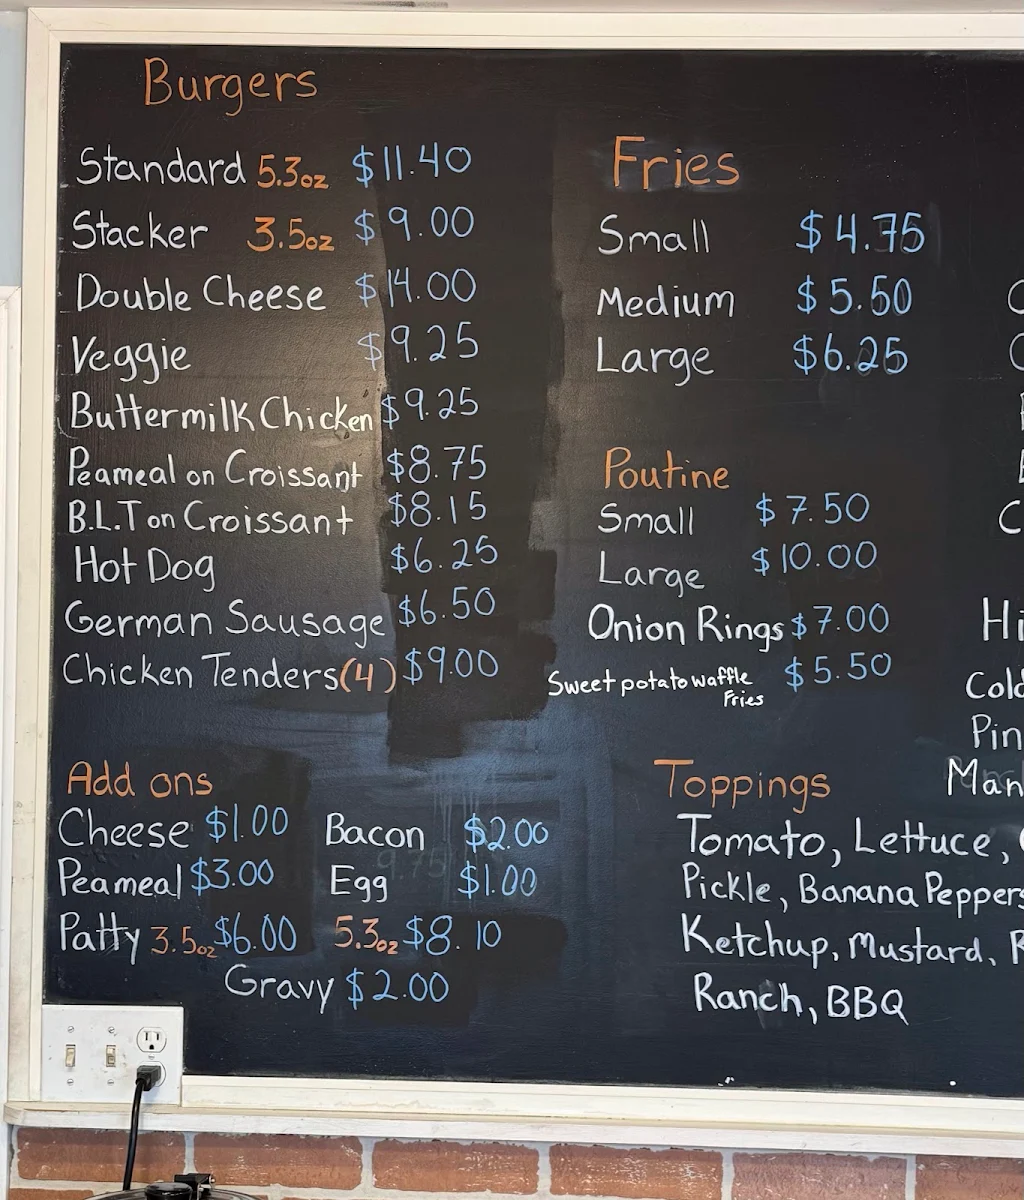 Burgers
Standard 5.3oz $11.40
Stacker 3.5oz $9.00
Double Cheese $14.00
Veggie $9.25
Buttermilk Chicken $9.25
Peameal on Croissant $8.75
B.L.T on Croissant $8.15
Hot Dog $6.25
German Sausage $6.50
Chicken Tenders(4) $9.00
Add ons
Cheese $1.00 Bacon $2.00
Peameal $3.00 Egg $1.00
Patty 3.5oz $6.00 5.3oz $8.10
Gravy $2.00
Fries
Small $4.75
Medium $5.50
Large $6.25
Poutine
Small $7.50
Large $10.00
Onion Rings $7.00
Sweet potato waffle $5.50
Fries
Toppings
Tomato, Lettuce,
Pickle, Banana Peppers
Ketchup, Mustard,
Ranch, BBQ